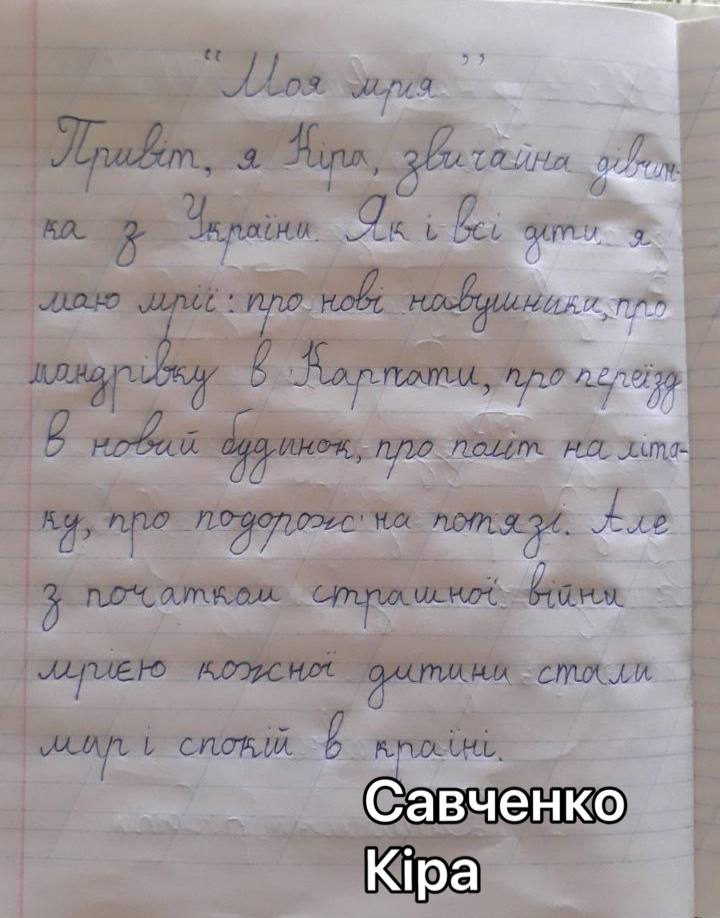 "Моя мрія"
Привіт, я Кіра, звичайна дівчин-
ка з України. Як і всі діти я
маю мрії: про нові навушники, про
мандрівку в Карпати, про переїзд
в новий будинок, про політ на літа-
ку, про подорож на потязі. Але
з початком страшної війни
мрією кожної дитини стали
мир і спокій в країні.
Савченко
Кіра